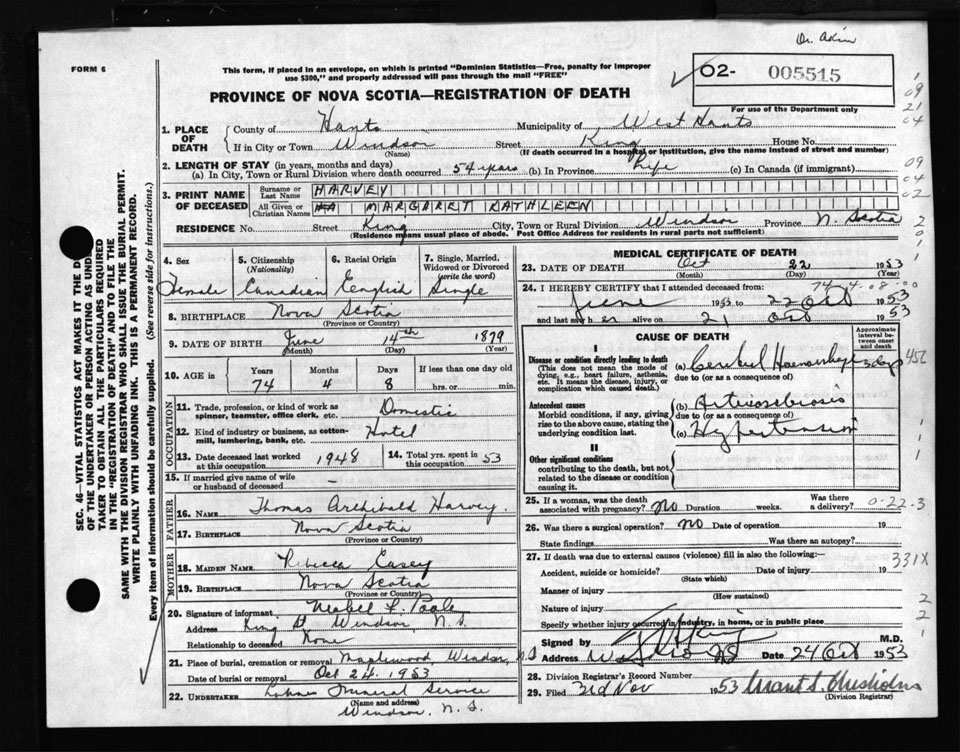 Dr. Akin
FORM 6
This form, if placed in an envelope, on which is printed "Dominion Statistics—Free, penalty for improper
use $300," and properly addressed will pass through the mail "FREE"
O2- 005515
PROVINCE OF NOVA SCOTIA—REGISTRATION OF DEATH
For use of the Department only
1. PLACE OF DEATH County of Hants Municipality of West Hants
If in City or Town Windsor Street King House No.
(Name) (If death occurred in a hospital or institution, give the name instead of street and number)
2. LENGTH OF STAY (in years, months and days)
(a) In City, Town or Rural Division where death occurred 54 years (b) In Province Life (c) In Canada (if immigrant)
3. PRINT NAME OF DECEASED Surname or Last Name HARVEY
All Given or Christian Names MARGARET KATHLEEN
RESIDENCE No. Street King City, Town or Rural Division Windsor Province N. Scotia
(Residence means usual place of abode. Post Office Address for residents in rural parts not sufficient)
4. Sex Female
5. Citizenship (Nationality) Canadian
6. Racial Origin English
7. Single, Married, Widowed or Divorced (write the word) Single
8. BIRTHPLACE Nova Scotia
(Province or Country)
9. DATE OF BIRTH June 14th 1879
(Month) (Day) (Year)
10. AGE in Years Months Days If less than one day old
74 4 8 hrs. or min.
OCCUPATION
11. Trade, profession, or kind of work as spinner, teamster, office clerk, etc. Domestic
12. Kind of industry or business, as cotton-mill, lumbering, bank, etc. Hotel
13. Date deceased last worked at this occupation 1948
14. Total yrs. spent in this occupation 53
15. If married give name of wife or husband of deceased —
FATHER
16. NAME Thomas Archibald Harvey
17. BIRTHPLACE Nova Scotia
(Province or Country)
MOTHER
18. MAIDEN NAME Rebecca Casey
19. BIRTHPLACE Nova Scotia
(Province or Country)
20. Signature of informant Mabel L. Poole
Address King St Windsor, N.S.
Relationship to deceased None
21. Place of burial, cremation or removal Maplewood, Windsor, N.S
Date of burial or removal Oct 24. 1953
22. UNDERTAKER Funeral Service
(Name and address)
Windsor, N.S.
MEDICAL CERTIFICATE OF DEATH
23. DATE OF DEATH Oct 22 1953
(Month) (Day)
74-4-08
24. I HEREBY CERTIFY that I attended deceased from:
June 1953 to 22 Oct 1953
and last saw her alive on 21 Oct 1953
CAUSE OF DEATH
Approximate interval between onset and death
I
Disease or condition directly leading to death
(This does not mean the mode of dying, e.g., heart failure, asthenia, etc. It means the disease, injury, or complication which caused death.)
(a) Cerebral Haemorrhage 3 days
due to (or as a consequence of)
Antecedent causes
Morbid conditions, if any, giving rise to the above cause, stating the underlying condition last.
(b) Arteriosclerosis
due to (or as a consequence of)
(c) Hypertension
II
Other significant conditions
contributing to the death, but not related to the disease or condition causing it.
25. If a woman, was the death associated with pregnancy? No Duration weeks. Was there a delivery?
0-22-3
26. Was there a surgical operation? No Date of operation 19
State findings Was there an autopsy?
27. If death was due to external causes (violence) fill in also the following:
331X
Accident, suicide or homicide? Date of injury 19
(State which)
Manner of injury
(How sustained)
Nature of injury
Specify whether injury occurred in industry, in home, or in public place
Signed by M.D.
Address Windsor NS Date 24 Oct 1953
28. Division Registrar's Record Number
29. Filed 3rd Nov 1953 Chisholm
(Division Registrar)
SEC. 46—VITAL STATISTICS ACT MAKES IT THE
OF THE UNDERTAKER OR PERSON ACTING AS UNDER
TAKER TO OBTAIN ALL THE PARTICULARS REQUIRED
IN THE "REGISTRATION OF DEATH" AND TO FILE THE
SAME WITH THE DIVISION REGISTRAR WHO SHALL ISSUE THE BURIAL PERMIT.
WRITE PLAINLY WITH UNFADING INK. THIS IS A PERMANENT RECORD.
Every item of information should be carefully supplied. (See reverse side for instructions.)
1
09
21
04
09
04
02
2
0